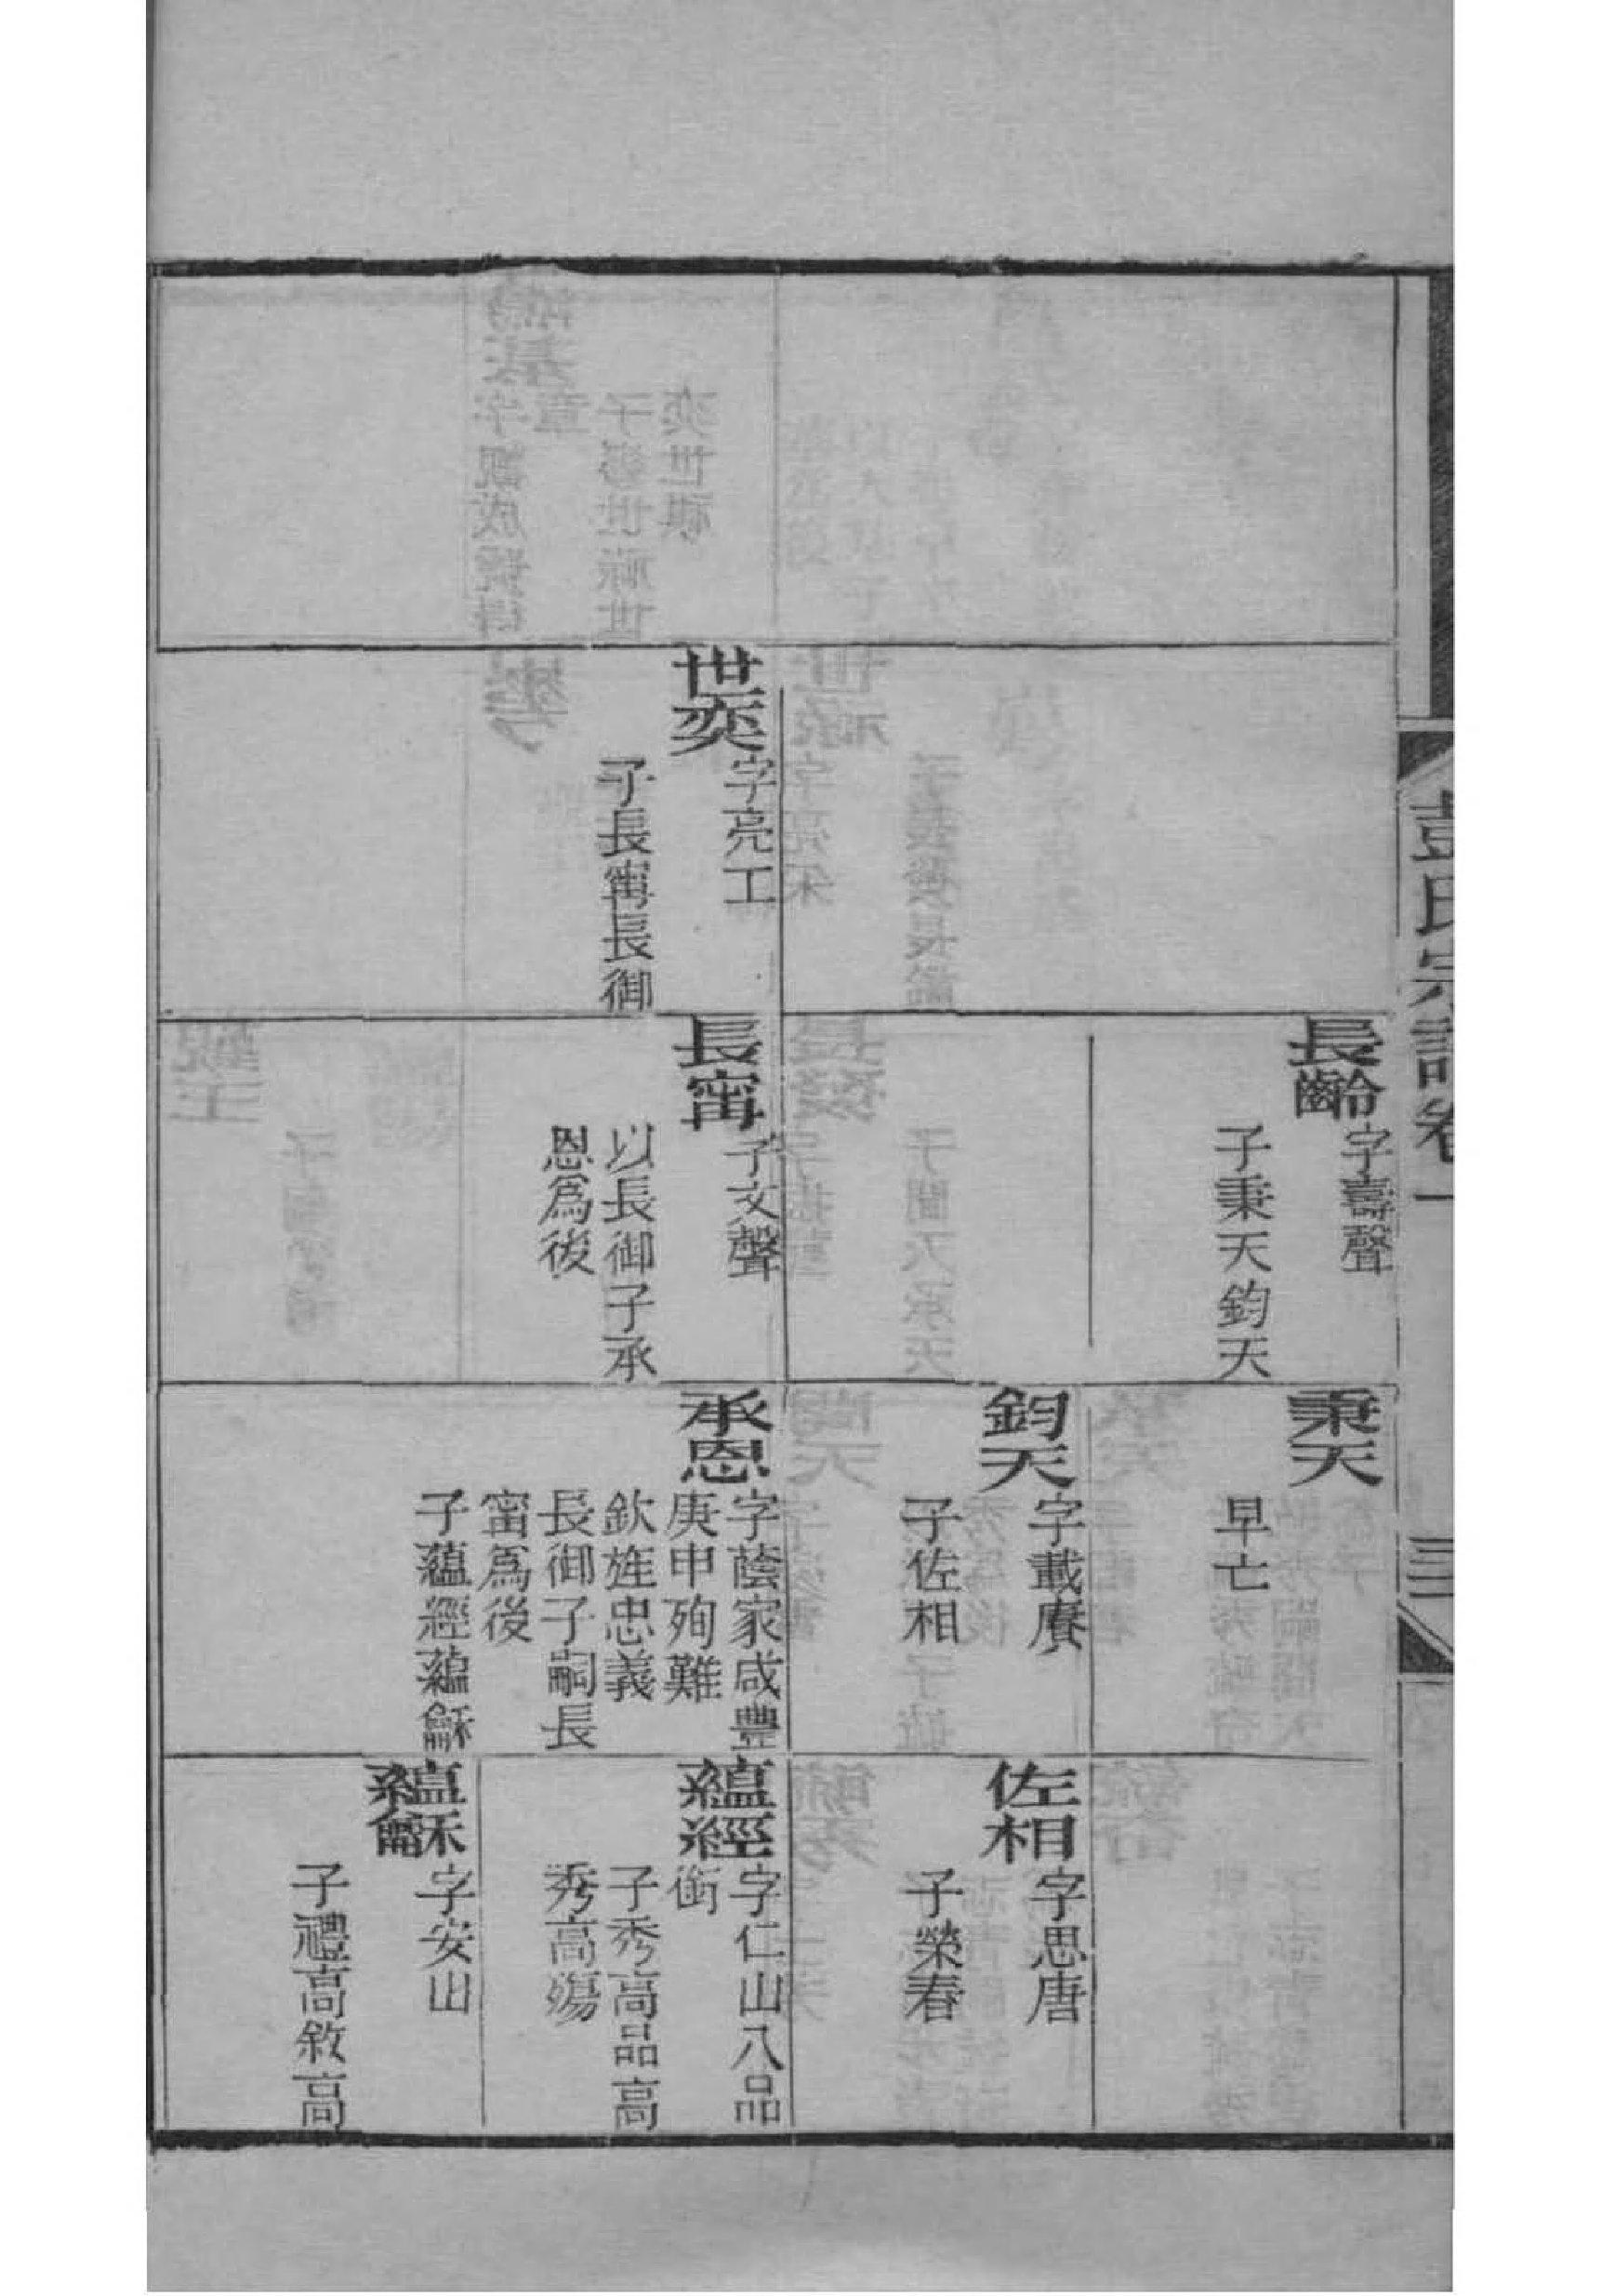 彭氏宗譜卷一
三
世奕
字亮工
子長甯長御
長齡
字壽聲
子秉天鈞天
長甯
字文聲
以長御子承
恩爲後
秉天
早亡
鈞天
字載賡
子佐相
承恩
字蔭家咸豐
庚申殉難
欽旌忠義
長御子嗣長
甯爲後
子蘊經蘊龢
佐相
字思唐
子榮春
蘊經
字仁山八品
銜
子秀高品高
秀高殤
蘊龢
字安山
子禮高敘高